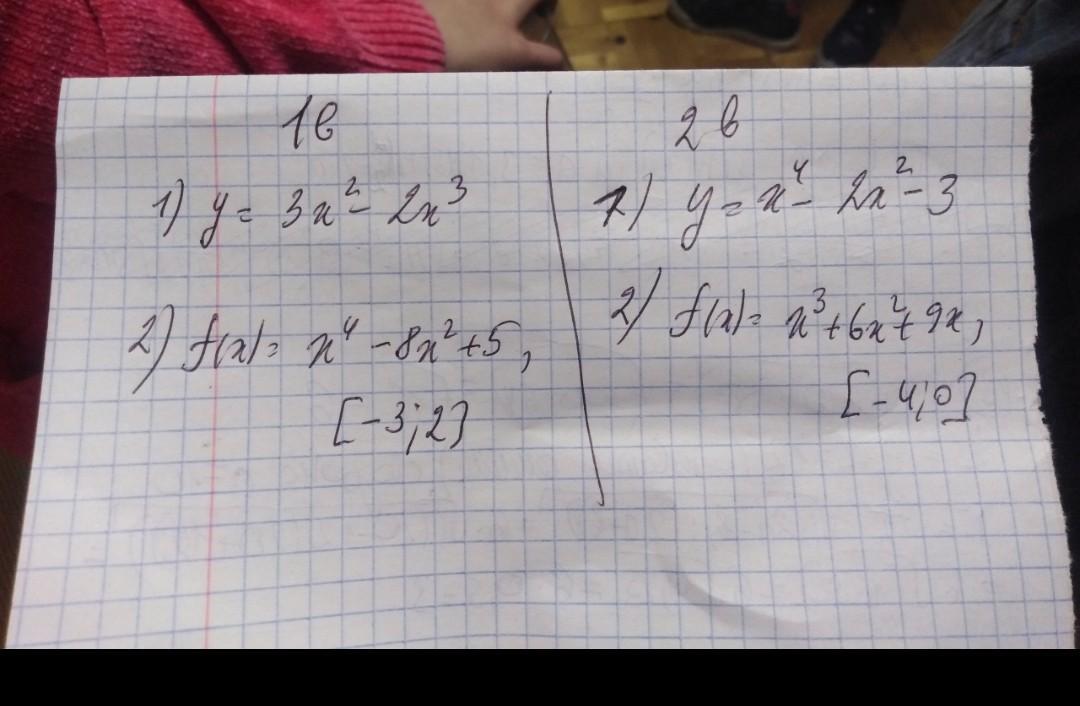 1в
1) y = 3x² - 2x³
2) f(x) = x⁴ - 8x² + 5,
[-3; 2]
2в
1) y = x⁴ - 2x² - 3
2) f(x) = x³ + 6x² + 9x,
[-4; 0]